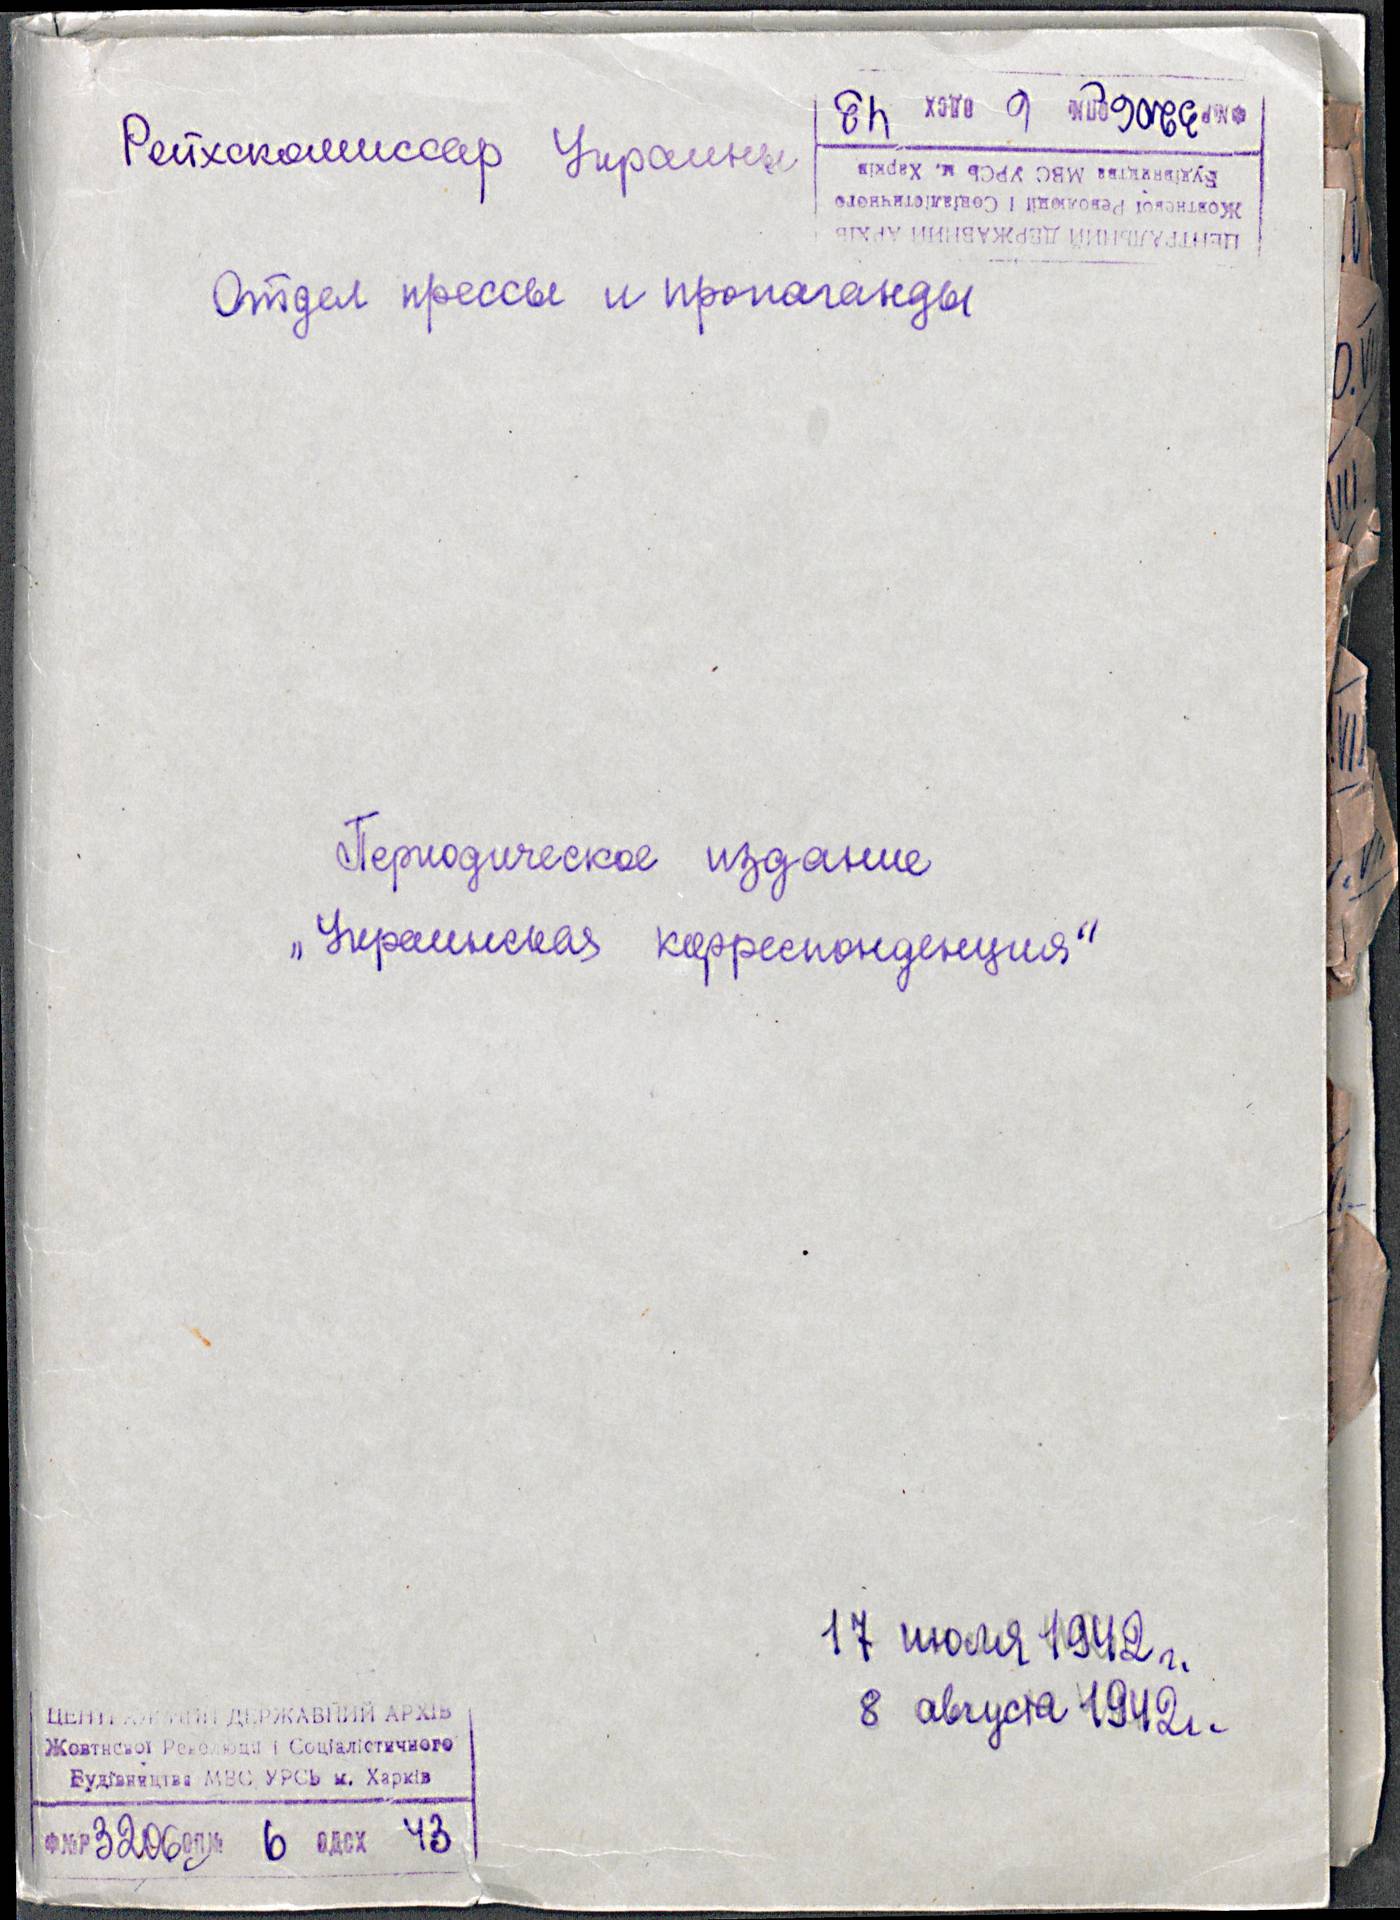 Рейхскомиссар Украины
ФМР 3206 ОПМ 6 ОДСХ 43
Будівництва МВС УРСЬ м. Харків
Жовтневої Революції і Соціалістичного
ЦЕНТРАЛЬНИЙ ДЕРЖАВНИЙ АРХІВ
Отдел прессы и пропаганды
Периодическое издание
„Украинская корреспонденция“
17 июля 1942 г.
8 августа 1942 г.
ЦЕНТРАЛЬНИЙ ДЕРЖАВНИЙ АРХІВ
Жовтневої Революції і Соціалістичного
Будівництва МВС УРСЬ м. Харків
Ф№Р 3206 ОП№ 6 ОДСХ 43